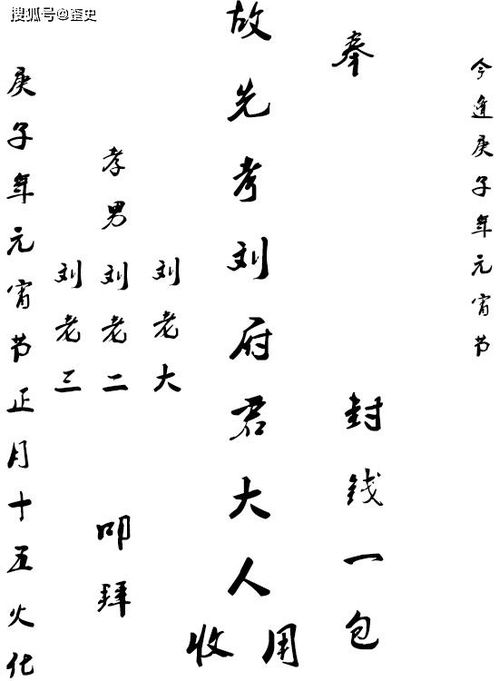 搜狐号@歪史
今逢庚子年元宵节
奉 封钱一包
故先考刘府君大人
收用
刘老大
孝男刘老二 叩拜
刘老三
庚子年元宵节正月十五火化